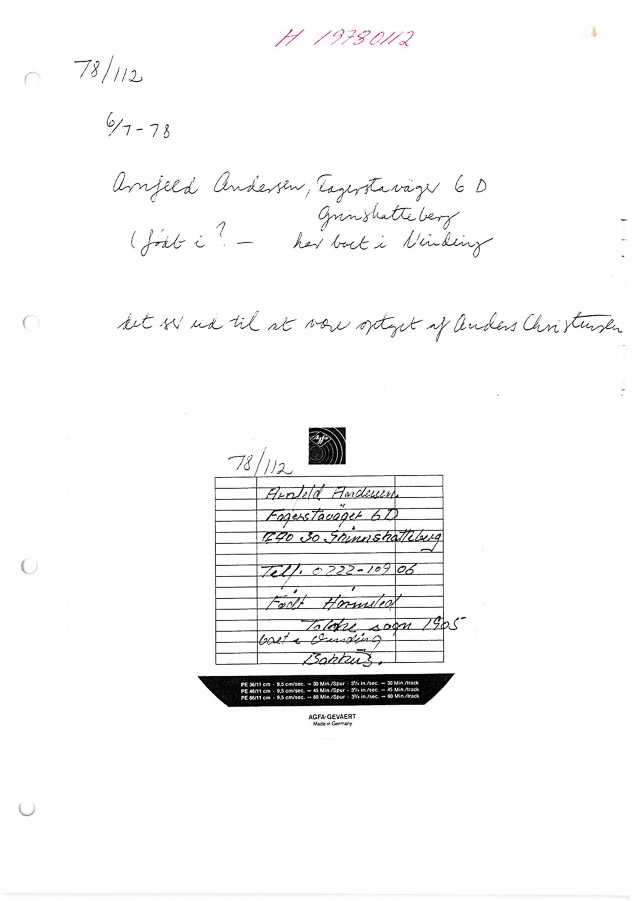 H 19780112
78/112
6/7-78
Arnfeld Andersen, Fagerstaväger 6 D
Grinshatteberg
(født i ? - har boet i Vinding
det ser ud til at være optaget af Anders Christensen
Agfa
78/112
Arnfeld Andersen.
Fagerstaväger 6 D
30 Skinnshatteberg
Telf. 0222-109 06
Født Harmsled
sogn 1905
boet i Vinding
PE 36/11 cm - 9,5 cm/sec. = 30 Min./Spur - 3¾ in./sec. = 30 Min./track
PE 46/11 cm - 9,5 cm/sec. = 45 Min./Spur - 3¾ in./sec. = 45 Min./track
PE 66/11 cm - 9,5 cm/sec. = 60 Min./Spur - 3¾ in./sec. = 60 Min./track
AGFA-GEVAERT
Made in Germany